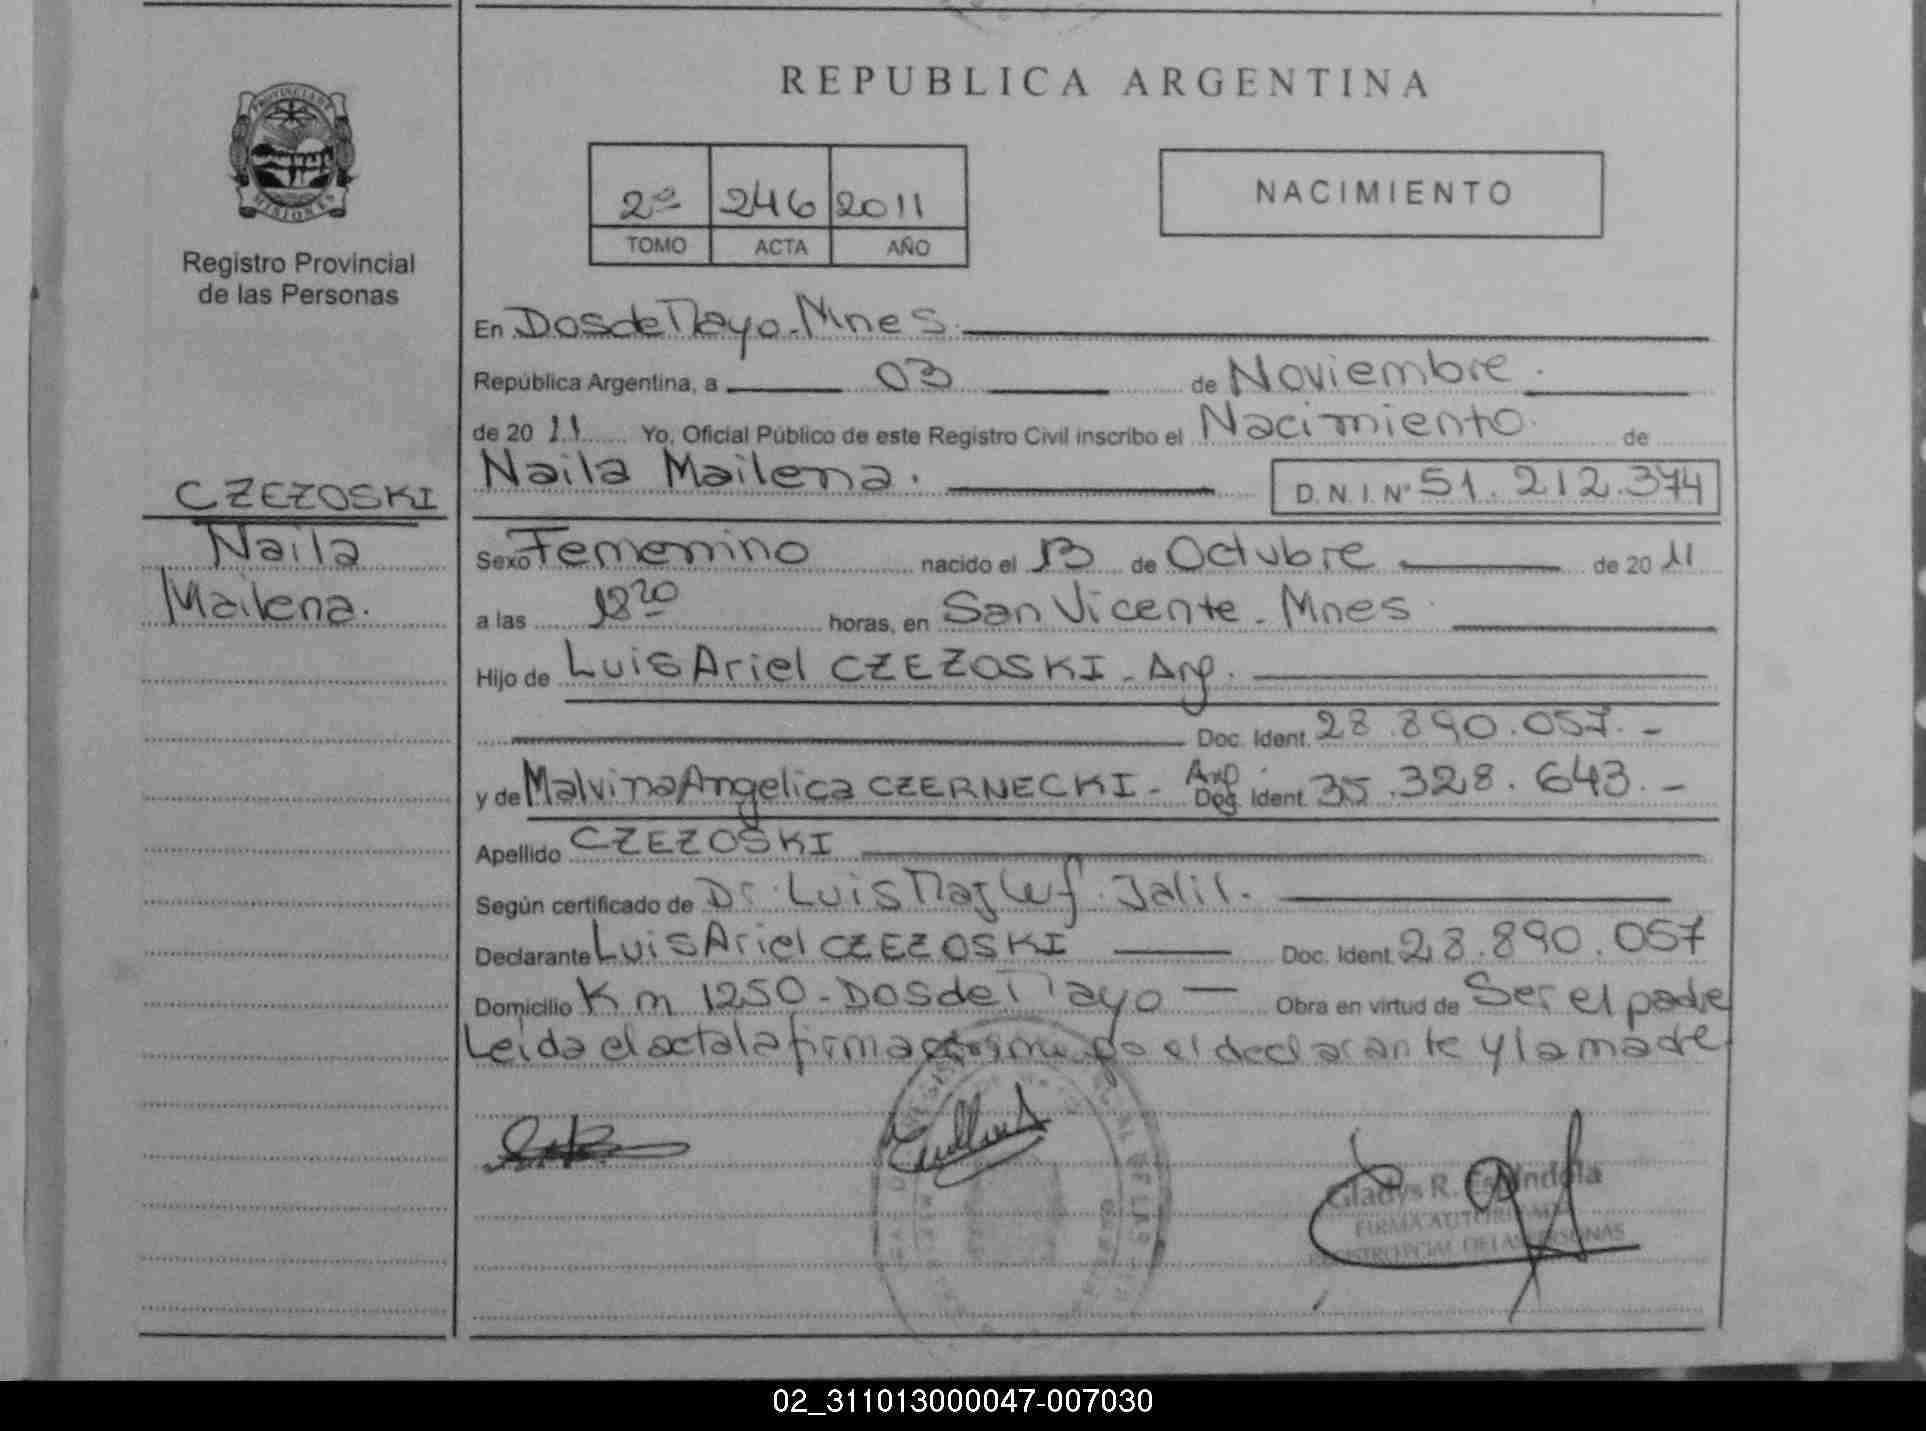 REPUBLICA ARGENTINA
PROVINCIA DE
MISIONES
Registro Provincial
de las Personas
2º 246 2011
TOMO ACTA AÑO
NACIMIENTO
CZEZOSKI
Naila
Mailena.
En Dos de Mayo - Mnes.
República Argentina, a 03 de Noviembre.
de 20 11 Yo, Oficial Público de este Registro Civil inscribo el Nacimiento de
Naila Mailena. D.N.I. Nº 51.212.374
Sexo Femenino nacido el 13 de Octubre de 20 11
a las 18 20 horas, en San Vicente - Mnes
Hijo de Luis Ariel CZEZOSKI - Arg.
Doc. Ident. 28.890.057.-
y de Malvina Angelica CZERNECKI - Arg Doc. Ident. 35.328.643.-
Apellido CZEZOSKI
Según certificado de Dr. Luis Jalil.
Declarante Luis Ariel CZEZOSKI Doc. Ident. 28.890.057
Domicilio Km 1250 - Dos de Mayo - Obra en virtud de Ser el padre
Leida el acta la firma el declarante y la madre
Gladys R. Espíndola
FIRMA AUTORIZADA
REGISTRO PCIAL. DE LAS PERSONAS
02_311013000047-007030